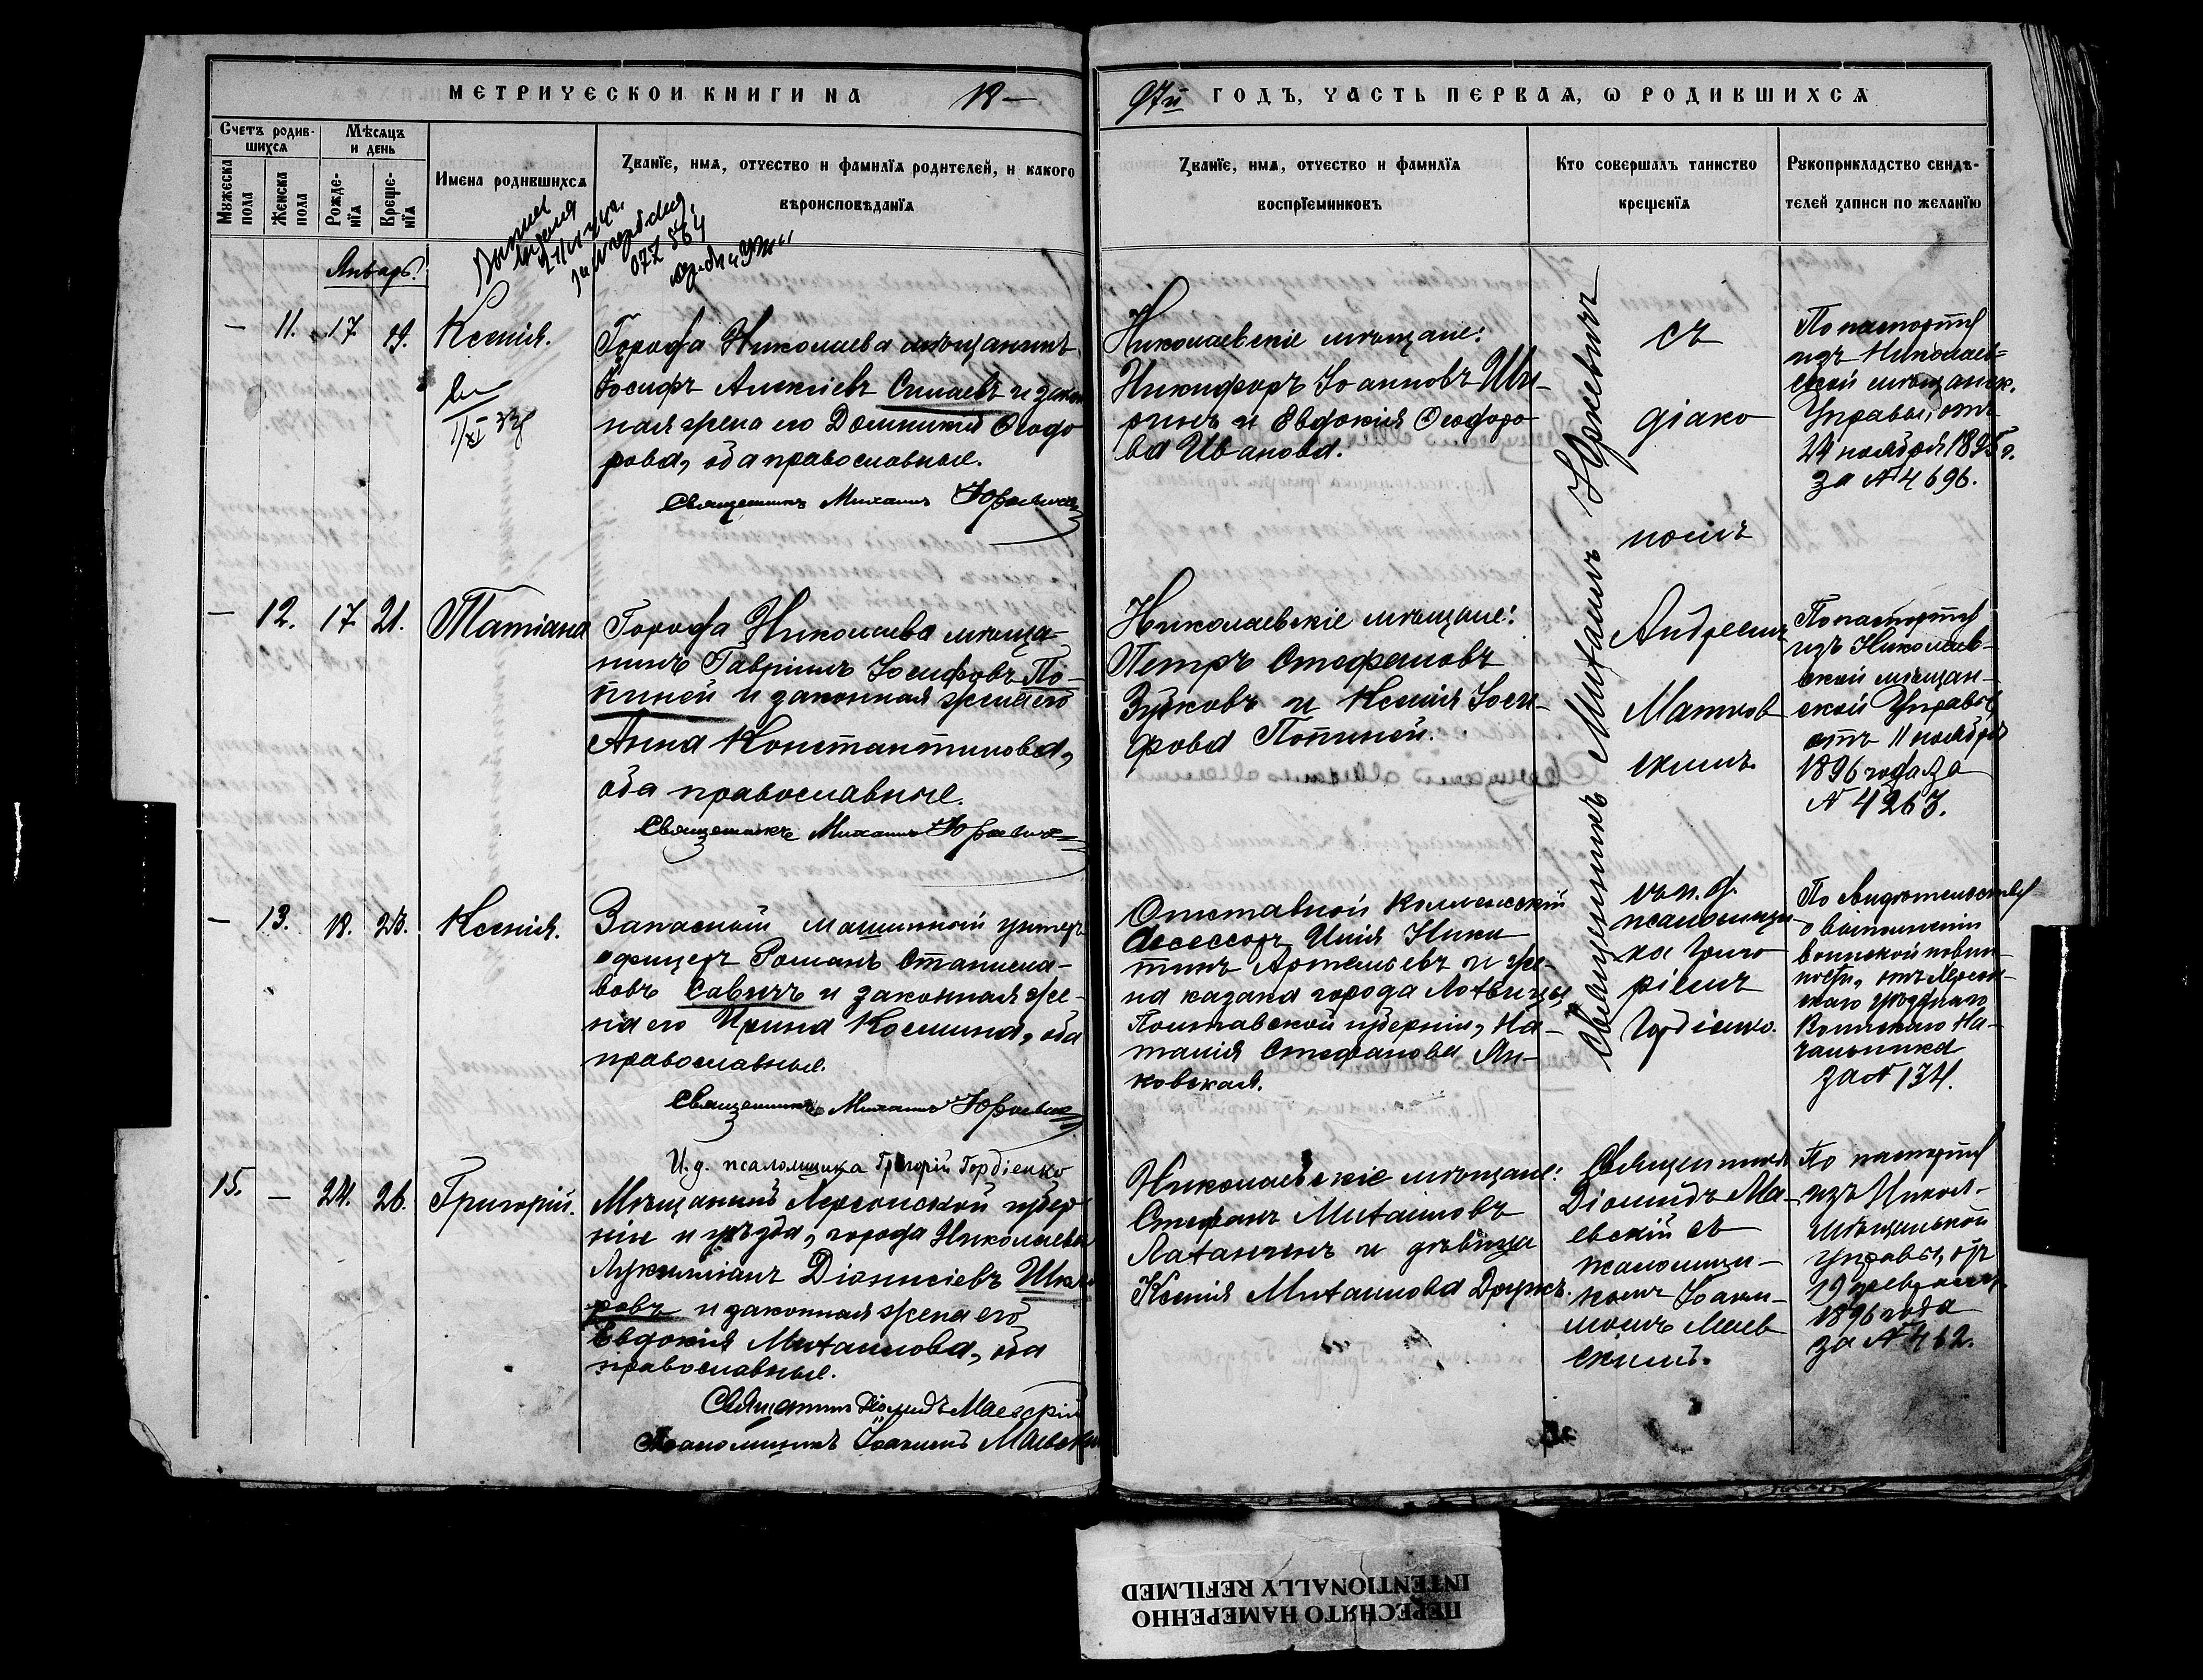 МЕТРИЧЕСКОЙ КНИГИ НА 18—
97й ГОДЪ, ЧАСТЬ ПЕРВАЯ, Ѡ РОДИВШИХСЯ
Счетъ родив-
шихся
Мѣсяцъ
и день
Мужеска
пола
Женска
пола
Рожде-
нїя
Креще-
нїя
Имена родившихся
Званїе, имя, отчество и фамилїя родителей, и какого
вѣроисповѣданїя
Званїе, имя, отчество и фамилїя
воспрїемниковъ
Кто совершалъ таинство
крещенїя
Рукоприкладство свидѣ-
телей записи по желанїю
Январь.
— 11. 17 19. Ксенія.
Города Николаева мѣщанинъ
Іосифъ Алексіевъ Силаевъ и закон
ная жена его Домникія Ѳеодо
рова, оба православные.
Священникъ Михаилъ Юркевичъ
Николаевскіе мѣщане:
Никифоръ Іоанновъ
и Евдокія Ѳеодоро
ва Иванова.
По паспорту
изъ Николаев=
ской мѣщанск.
Управы, отъ
24 ноября 1895 г.
за № 4696.
— 12. 17 21. Татіана
Города Николаева мѣща-
нинъ Гавріилъ Іосифовъ По-
тиней и законная жена его
Анна Константинова,
оба православные.
Священникъ Михаилъ Юркевичъ
Николаевскіе мѣщане:
Петръ Стефановъ
Зубковъ и Ксенія Іоси-
фова Потиней.
По паспорту
изъ Николаев-
ской мѣщан-
ской Управы,
отъ 11 ноября
1896 года за
№ 4263.
Священникъ Михаилъ Юркевичъ
съ
діако
номъ
Андреемъ
Матков
скимъ
— 13. 18. 23. Ксенія.
Запасный машинный унтеръ
офицеръ Романъ Станисла-
вовъ Савичъ и законная же-
на его Ирина Космина, оба
православные.
Священникъ Михаилъ Юркевичъ
И. д. псаломщика Григорій Гордіенко
Отставной Коллежскій
Асессоръ Илія Ники
тинъ Артемьевъ и же-
на казака города Лохвицы
Полтавской губерніи, На-
талія Стефанова Ян-
ковская.
съ и. д.
псаломщи-
ка Григо
ріемъ
Гордіенко.
По свидѣтельству
о выполненіи
воинской повин-
ности, отъ Херсон-
скаго уѣзднаго
Воинскаго На-
чальника
за № 134.
15. — 24. 26. Григорій.
Мѣщанинъ Херсонской губер
ніи и уѣзда, города Николаева
Лукилліанъ Діонисіевъ
ровъ и законная жена его
Евдокія Михаилова, оба
православные.
Священникъ Діомидъ Маевскій
Псаломщикъ Іоакимъ Маевскій
Николаевскіе мѣщане:
Стефанъ Михаиловъ
Лаханчинъ и дѣвица
Ксенія Михаилова
Священникъ
Діомидъ Ма-
евскій съ
псаломщи-
комъ Іоаки-
момъ Маев
скимъ.
По паспорту
изъ Никол-
мѣщанской
управы, отъ
19 февраля
1896 года
за № 462.
ПЕРЕСНЯТО НАМЕРЕННО
INTENTIONALLY REFILMED